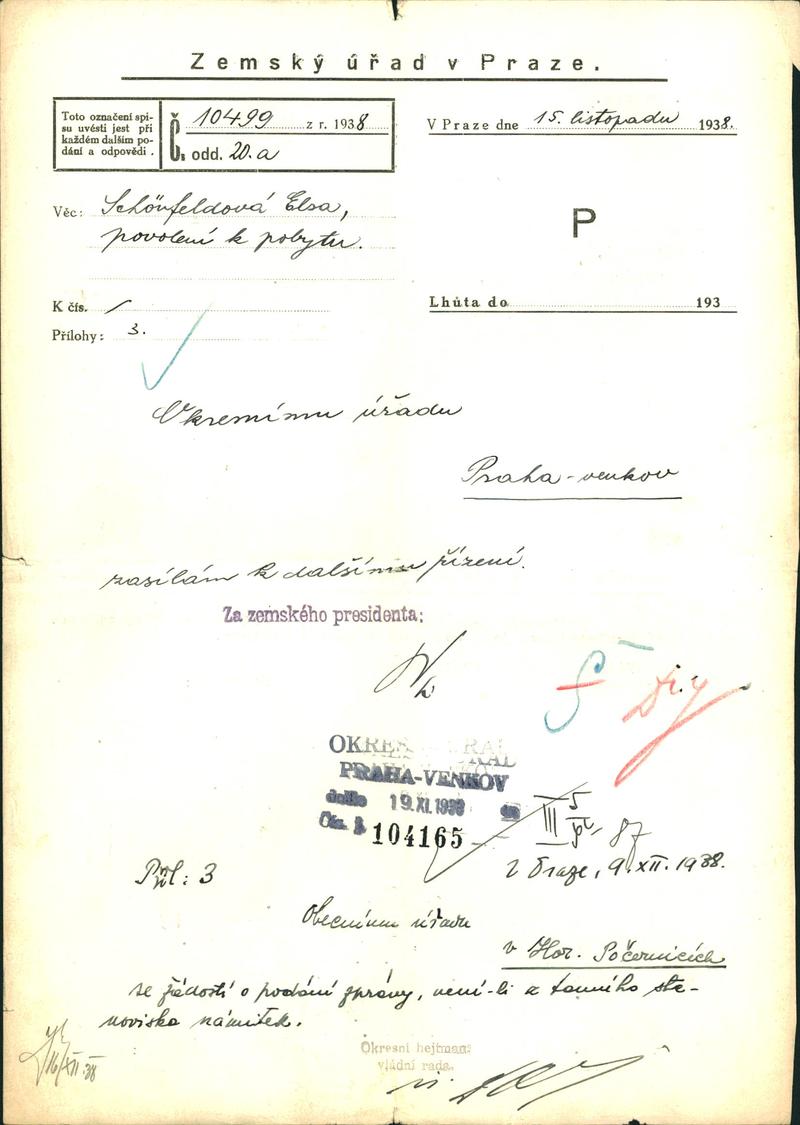 Zemský úřad v Praze.
Toto označení spi-
su uvésti jest při
každém dalším po-
dání a odpovědi.
Č. 10499 z r. 1938
odd. 20.a
V Praze dne 15. listopadu 1938.
Věc: Schönfeldová Elsa,
povolení k pobytu.
P
K čís. /
Lhůta do 193
Přílohy: 3.
Okresnímu úřadu
Praha-venkov
zasílám k dalšímu řízení.
Za zemského presidenta:
OKRES
PRAHA-VENKOV
došlo 19.XI.1938
Čís. 104165
III 5
87
V Praze, 9.XII.1938.
Příl: 3
Obecnímu úřadu
v Hor. Počernicích
se žádostí o podání zprávy, není-li z tamního sta-
noviska námitek.
Okresní hejtman:
vládní rada.
16/XII 38